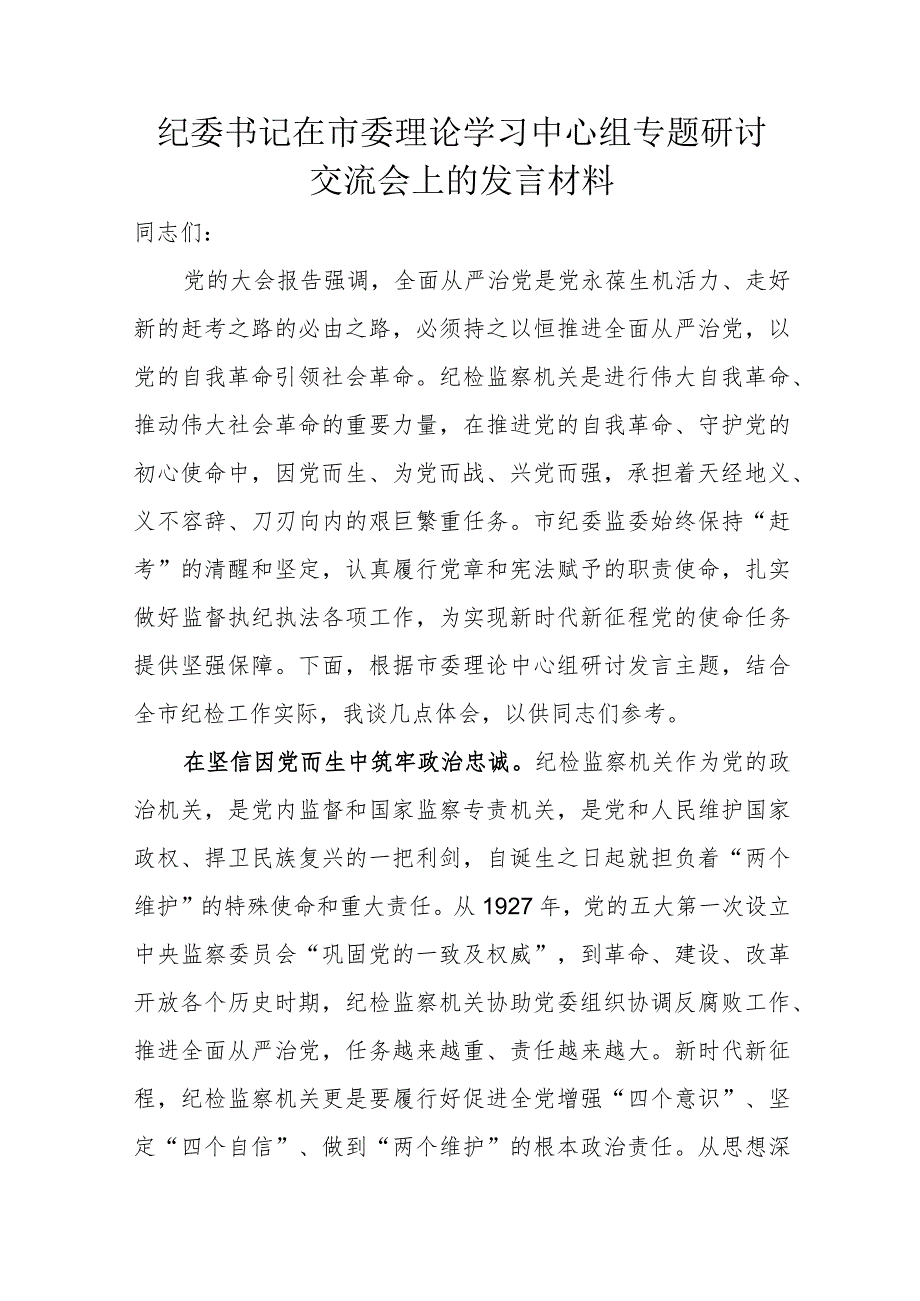 纪委书记在市委理论学习中心组专题研讨
交流会上的发言材料
同志们：
党的大会报告强调，全面从严治党是党永葆生机活力、走好
新的赶考之路的必由之路，必须持之以恒推进全面从严治党，以
党的自我革命引领社会革命。纪检监察机关是进行伟大自我革命、
推动伟大社会革命的重要力量，在推进党的自我革命、守护党的
初心使命中，因党而生、为党而战、兴党而强，承担着天经地义、
义不容辞、刀刃向内的艰巨繁重任务。市纪委监委始终保持“赶
考”的清醒和坚定，认真履行党章和宪法赋予的职责使命，扎实
做好监督执纪执法各项工作，为实现新时代新征程党的使命任务
提供坚强保障。下面，根据市委理论中心组研讨发言主题，结合
全市纪检工作实际，我谈几点体会，以供同志们参考。
在坚信因党而生中筑牢政治忠诚。纪检监察机关作为党的政
治机关，是党内监督和国家监察专责机关，是党和人民维护国家
政权、捍卫民族复兴的一把利剑，自诞生之日起就担负着“两个
维护”的特殊使命和重大责任。从 1927 年，党的五大第一次设立
中央监察委员会“巩固党的一致及权威”，到革命、建设、改革
开放各个历史时期，纪检监察机关协助党委组织协调反腐败工作、
推进全面从严治党，任务越来越重、责任越来越大。新时代新征
程，纪检监察机关更是要履行好促进全党增强“四个意识”、坚
定“四个自信”、做到“两个维护”的根本政治责任。从思想深